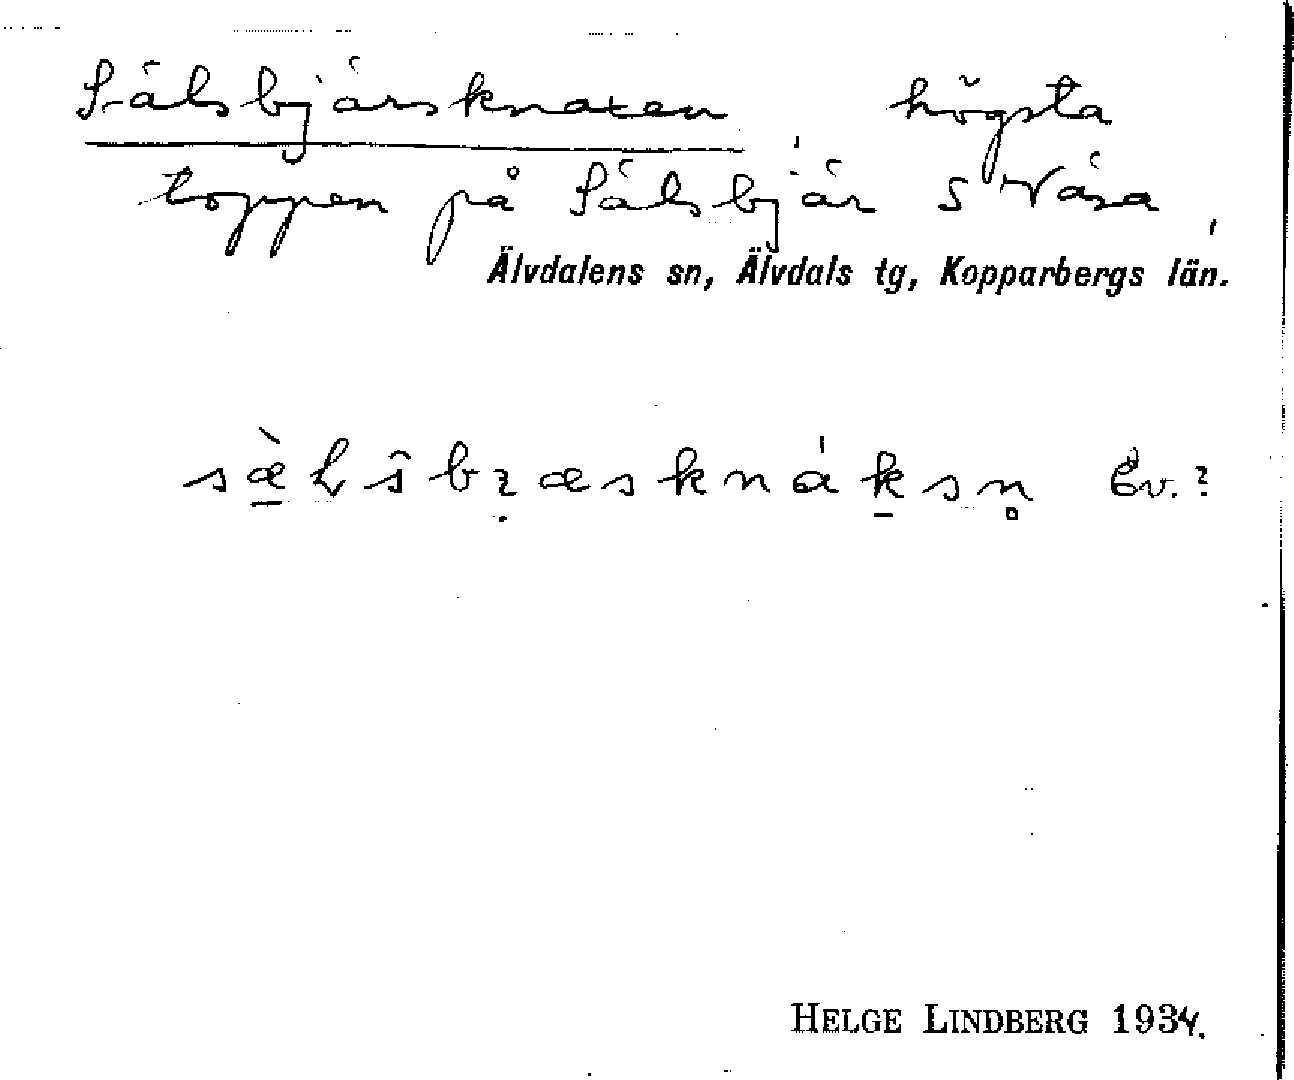 Sälsbjärsknaxen högsta
toppen på Sälsbjär S Väsa,
Älvdalens sn, Älvdals tg, Kopparbergs län.
Ev.?
HELGE LINDBERG 1934.